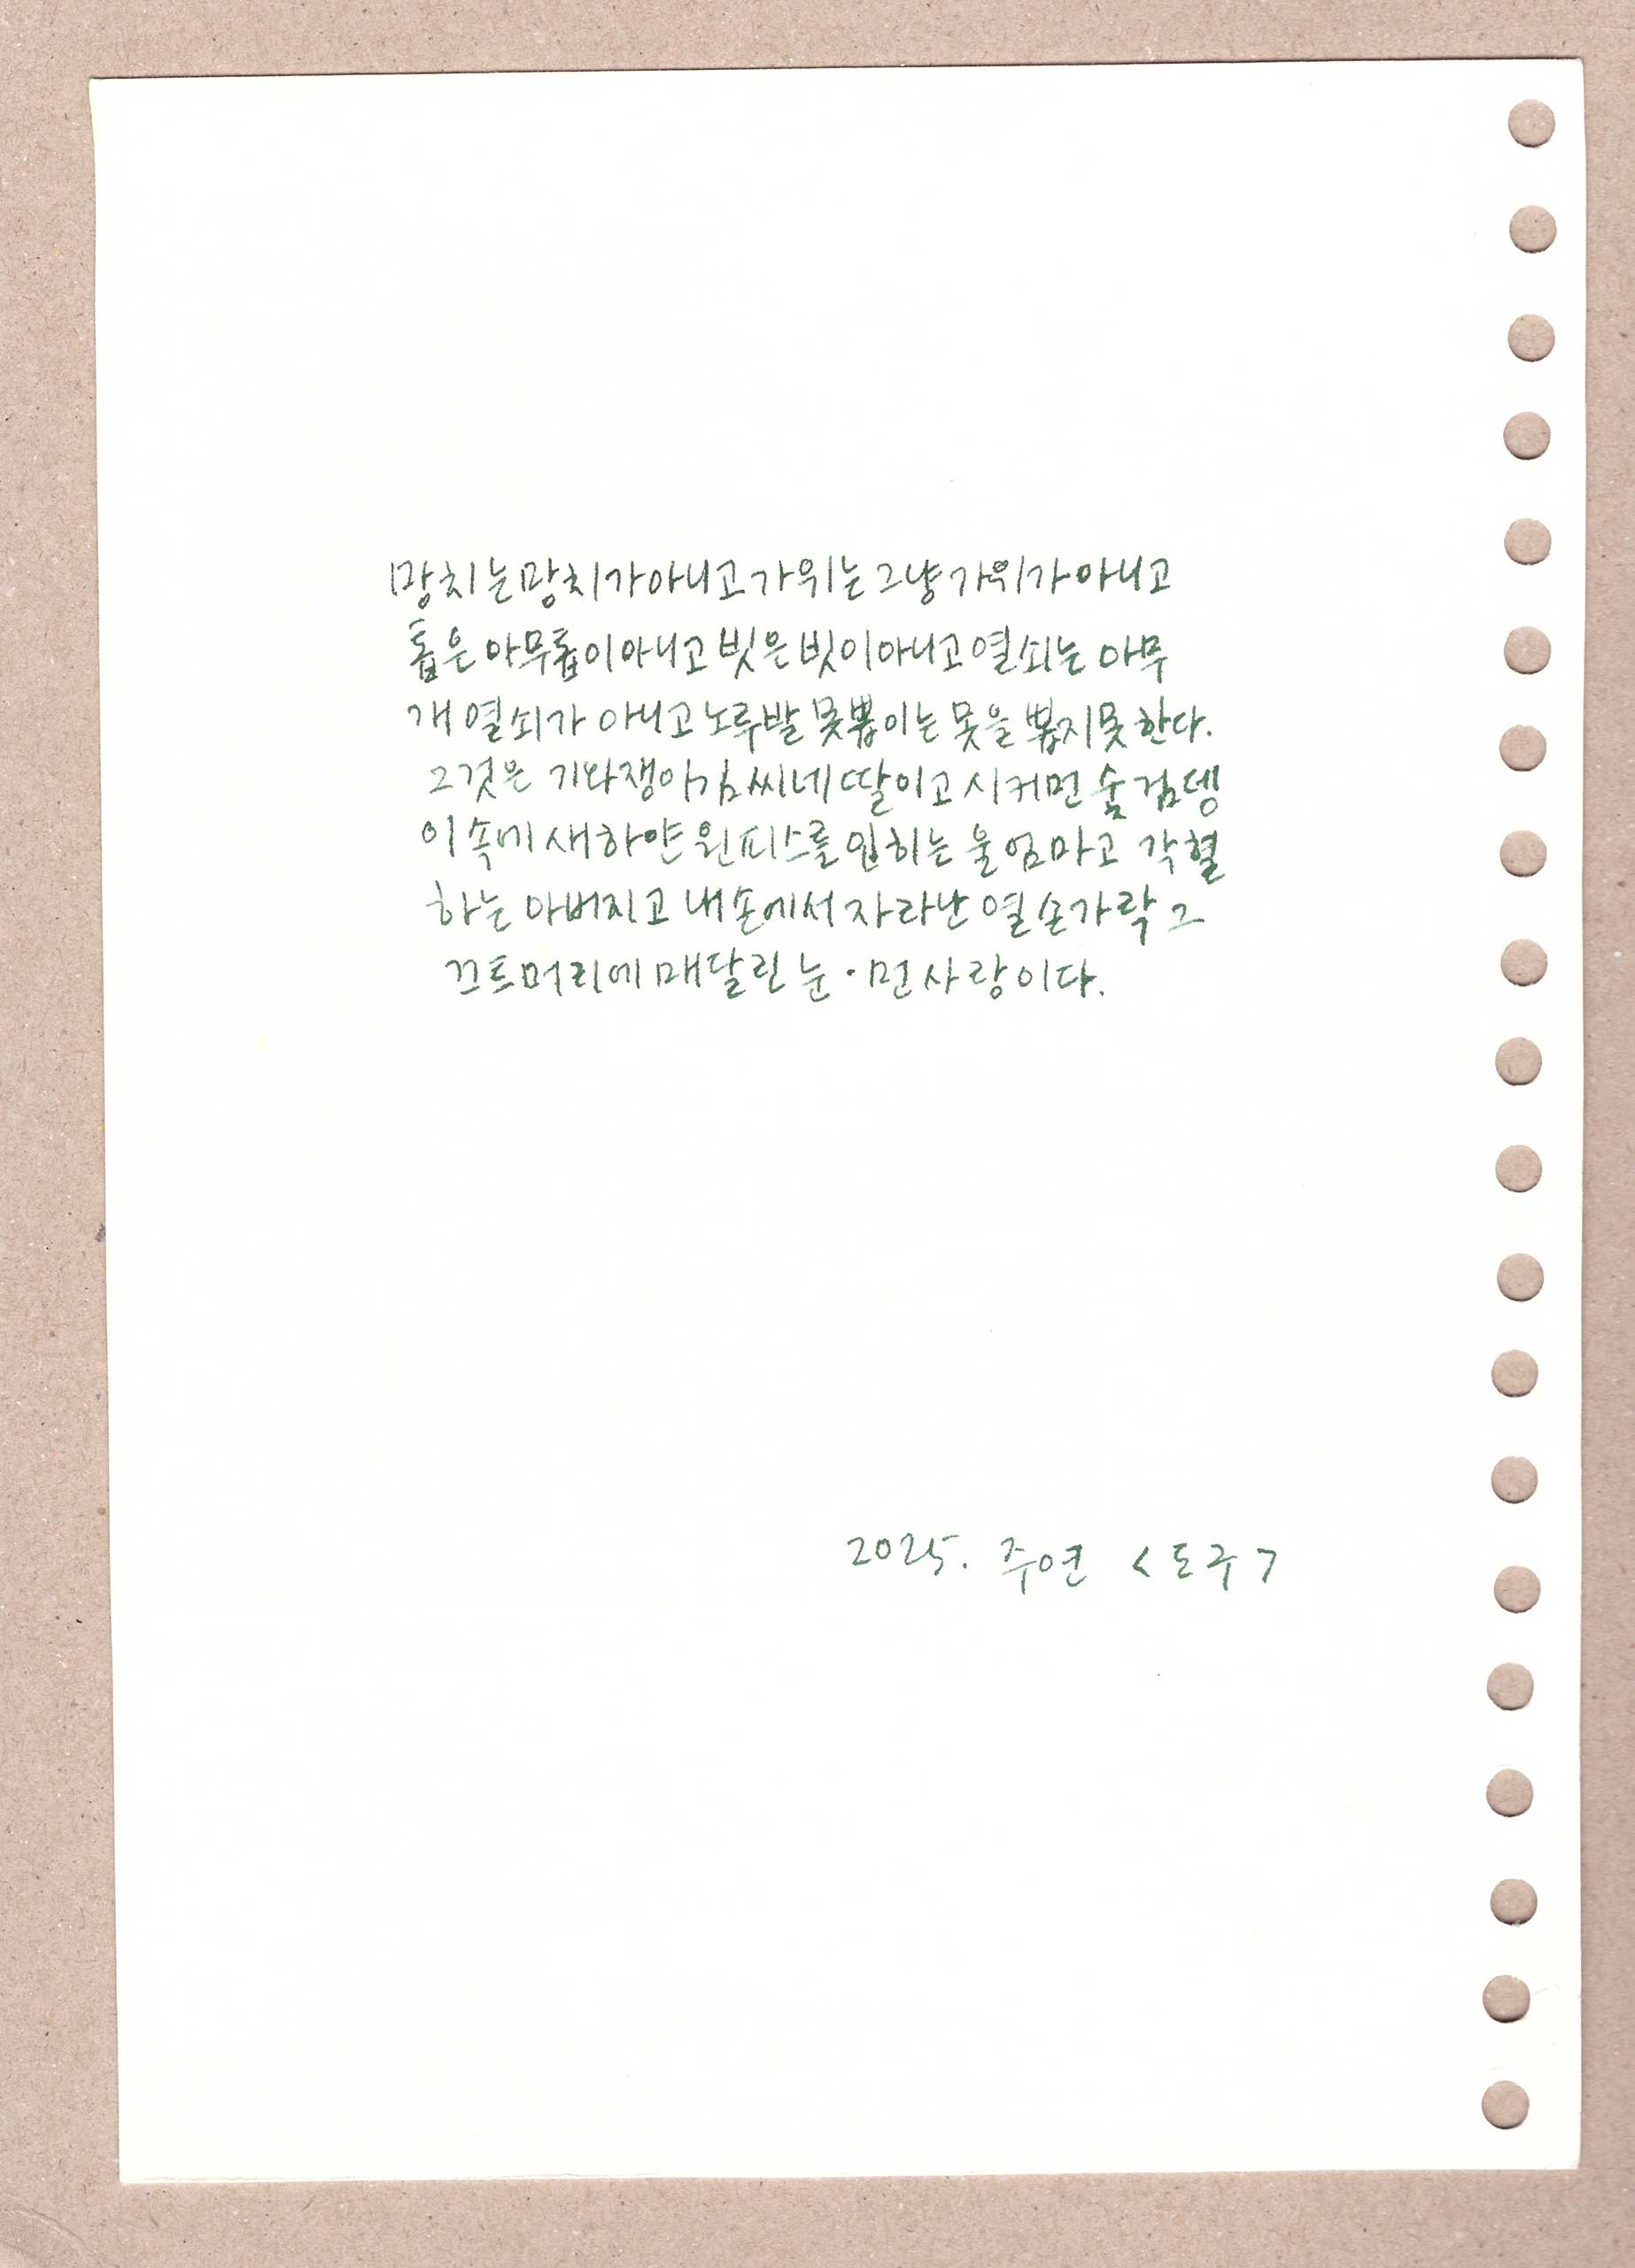 망치는망치가아니고가위는그냥가위가아니고
톱은아무톱이아니고빗은빗이아니고열쇠는 아무
개 열쇠가 아니고노루발 못뽑이는 못을 뽑지못한다.
그것은 기와쟁이김씨네딸이고 시커먼 숯검뎅
이속에 새하얀원피스를입히는 울엄마고 각혈
하는 아버지고 내손에서자라난 열손가락 그
끄트머리에매달린눈·먼사랑이다.
2025. 주연 <도구>